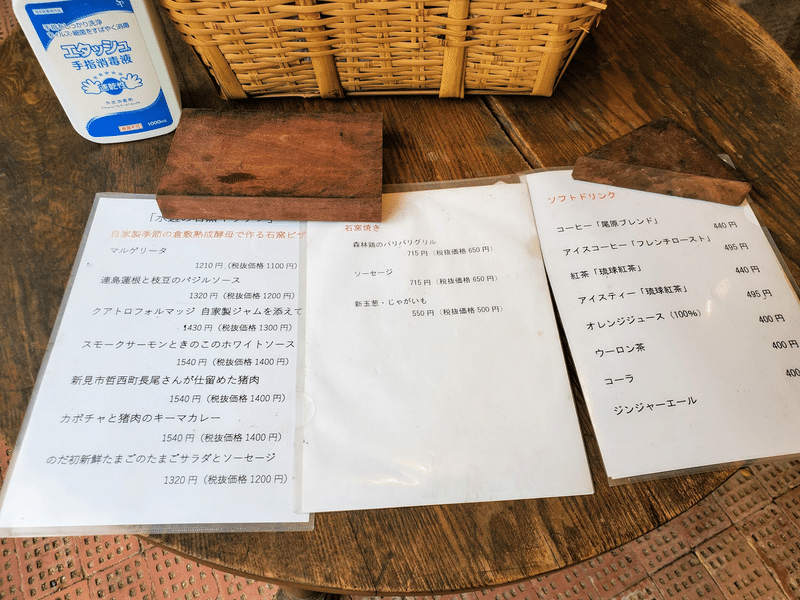 エタッシュ
手指消毒液
速乾性
1000mL
自家製季節の倉敷熟成酵母で作る石窯ピザ
マルゲリータ
1210円（税抜価格1100円）
連島蓮根と枝豆のバジルソース
1320円（税抜価格1200円）
クアトロフォルマッジ 自家製ジャムを添えて
1430円（税抜価格1300円）
スモークサーモンときのこのホワイトソース
1540円（税抜価格1400円）
新見市哲西町長尾さんが仕留めた猪肉
1540円（税抜価格1400円）
カボチャと猪肉のキーマカレー
1540円（税抜価格1400円）
のだ初新鮮たまごのたまごサラダとソーセージ
1320円（税抜価格1200円）
石窯焼き
森林鶏のパリパリグリル
715円（税抜価格650円）
ソーセージ
715円（税抜価格650円）
新玉葱・じゃがいも
550円（税抜価格500円）
ソフトドリンク
コーヒー「尾原ブレンド」 440円
アイスコーヒー「フレンチロースト」 495円
紅茶「琉球紅茶」 440円
アイスティー「琉球紅茶」 495円
オレンジジュース（100%） 400円
ウーロン茶 400円
コーラ 400
ジンジャーエール